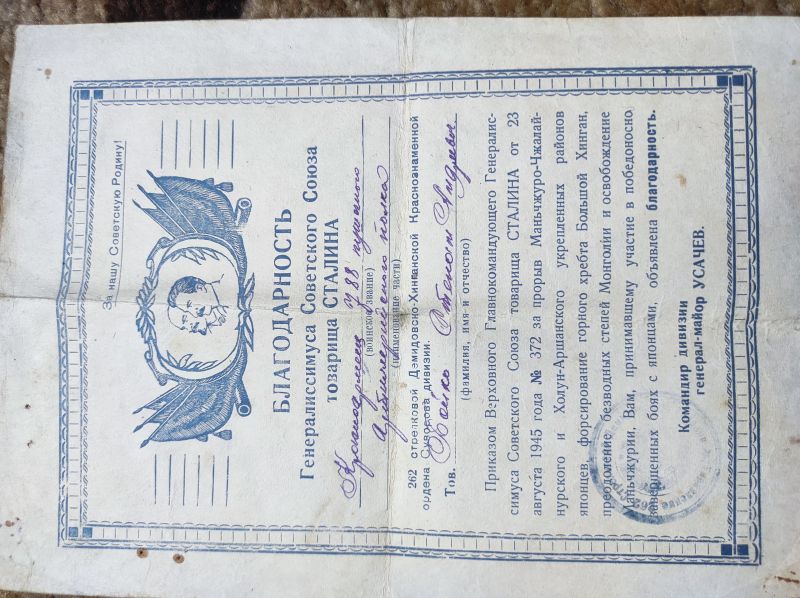 За нашу Советскую Родину!
БЛАГОДАРНОСТЬ
Генералиссимуса Советского Союза
товарища СТАЛИНА
Красноармеец 788 пушечного
(воинское звание)
Артиллерийского полка
(наименование части)
262 стрелковой Демидовско-Хинганской Краснознаменной
ордена Суворова дивизии.
Тов. Бойко Степан Андреевич
(фамилия, имя и отчество)
Приказом Верховного Главнокомандующего Генералис-
симуса Советского Союза товарища СТАЛИНА от 23
августа 1945 года № 372 за прорыв Маньчжуро-Чжалай-
нурского и Холун-Аршанского укрепленных районов
японцев, форсирование горного хребта Большой Хинган,
преодоление безводных степей Монголии и освобождение
Маньчжурии, Вам, принимавшему участие в победоносно
завершенных боях с японцами, объявлена благодарность.
Командир дивизии
генерал-майор УСАЧЕВ.